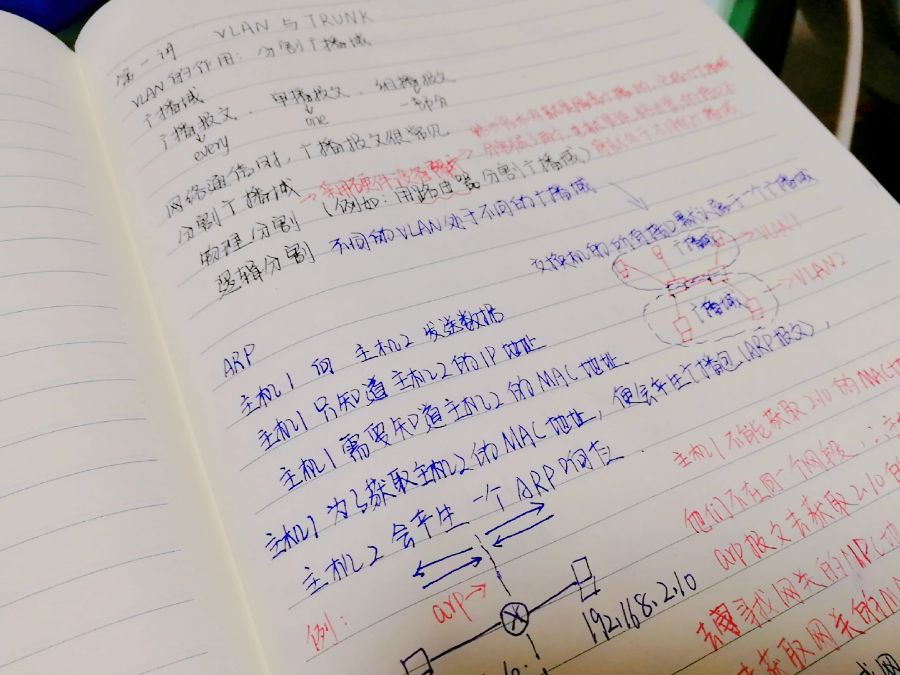 第一讲 VLAN 与 TRUNK
VLAN的作用：分割广播域
广播域
广播报文、单播报文、组播报文
every one 一部分
网络通信时，广播报文很常见
分割广播域 → 采用硬件设备
物理分割 （例如：用路由器分割广播域）
逻辑分割 不同的VLAN处于不同的广播域
交换机的所有接口默认属于一个广播域
广播域 → VLAN1
广播域 → VLAN2
ARP
主机1 向 主机2 发送数据
主机1只知道主机2的IP地址
主机1需要知道主机2的MAC地址
主机1为了获取主机2的MAC地址，便会产生广播包（ARP报文），
主机2会产生一个ARP响应.
主机1不能获取2.10的MAC地
他们不在同一个网段，∴主
arp报文去获取2.10的
去寻找网关的MAC地
去获取网关的MA
例：
arp→
192.168.2.10